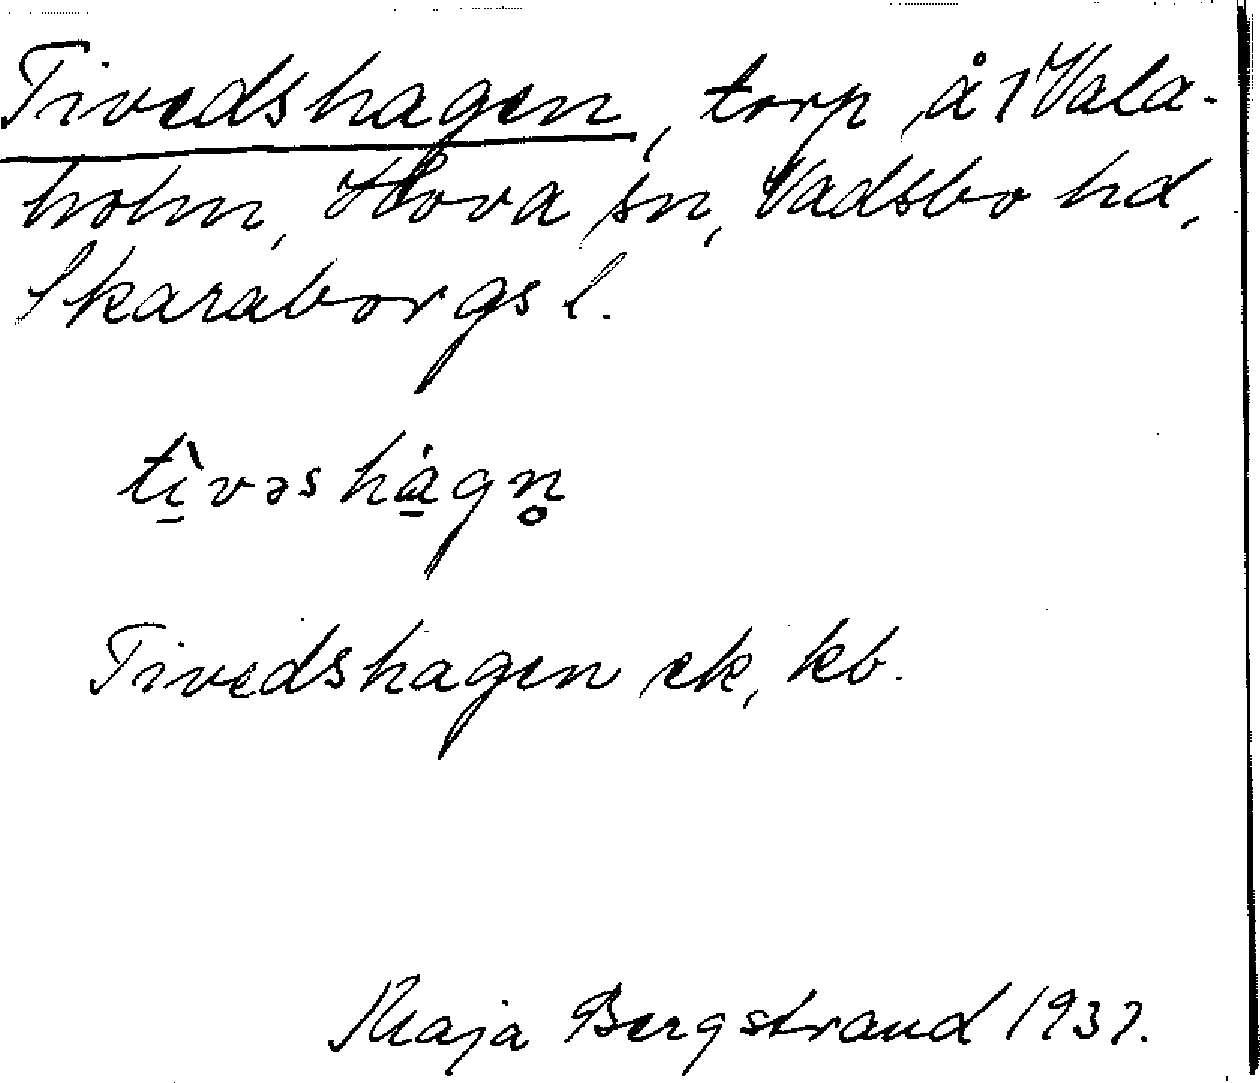 Tivedshagen, torp å 1 Vala-
holm, Hova sn, Vadsbo hd,
Skaraborgs l.
tı̱̀vəshȧ̱gn̥
Tivedshagen ek, kb.
Maja Bergstrand 1937.